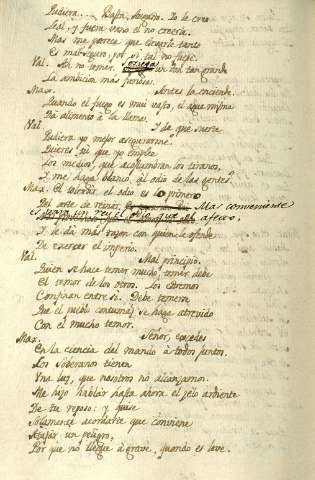 Pudiera... Basta, Augusto. Yo te creo
Leal, y fuera vano si no creería.
Mas me parece que
Es mal seguro, por si tal no fuese.
Val. Ah no temer tan grande
La ambicion mas furiosa.
Max. Antes la enciende.
Quando el fuego es mui vasto, el agua misma
Da alimento à la llama.
Val. I de que suerte
Pudiera yo mejor asegurarme?
Quieres tú que yo emplee
Los medios, que acostumbran los tiranos,
I me haga blanco al odio de las gentes?
Max. El tolerar el odio es lo primero
Del arte de reinar, Mas conveniente
es para un rey el odio que el afecto.
I le dà mas razon con quien le ofende
De exercer el imperio.
Val. Mal principio.
Quien se hace temer mucho, temer debe
El temor de los otros. Los extremos
Confinan entre si. Debe temerse
Que el pueblo contumaz se haga atrevido
Con el mucho temor.
Max. Señor, excedes
En la ciencia del mando à todos juntos.
Los Soberanos tienen
Una luz, que nosotros no alcanzamos.
Me hizo hablar hasta ahora el zelo ardiente
De tu reposo: y quise
Solamente acordarte que conviene
Atajar un peligro,
Por que no llegue à grave, quando es leve.